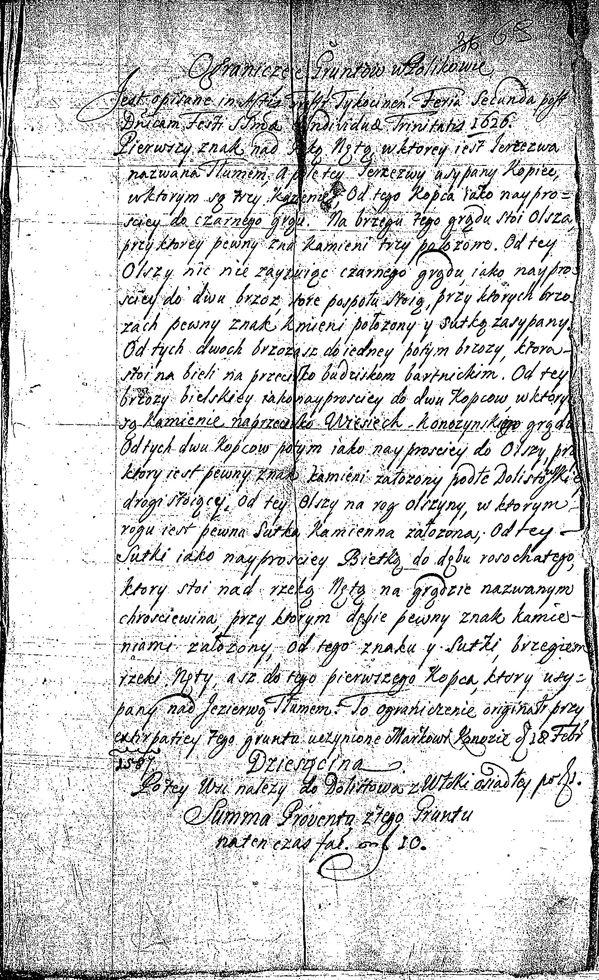 36 63
Ograniczęę Gruntow wPolikowie
Jest opisane in Actis Tykocinen. Feria Secunda post
Dnicam Festi S Individuæ Trinitatis 1626.
Pierwszy znak nad rzeką Nętą w ktorey iest Jerzezwa
nazwana Tłumem, A tey Jerzezwy usypany Kopiec,
w ktorym są trzy Kamienie. Od tego Kopca iako naypro=
sciey do czarnego grądu. Na brzegu tego grądu stoi Olsza,
przy ktorey pewny znak kamieni trzy położone. Od tey
Olszy nic nie zaymuiąc czarnego grądu, iako naypro=
sciey do dwu brzoz ktore pospołu stoią, przy ktorych brzo
zach pewny znak kamieni położony y sutką zasypany.
Od tych dwoch brzoz asz do iedney potym brzozy, ktora
stoi na bieli na przeciwko budziskom bartnickim. Od tey
brzozy bielskiey iako nayprosciey do dwu Kopcow w ktorych
są Kamienie naprzeciwko Wiesiech - Konozynskiego grądu
Od tych dwu Kopcow potym iako nayprosciey do Olszy, przy
ktory iest pewny znak kamieni założony podle Dolistowskiey
drogi stoiącey. Od tey Olszy na rog olszyny, w ktorym
rogu iest pewna Sutka Kamienna założona. Od tey
Sutki iako nayprosciey Bielką do dębu rosochatego,
ktory stoi nad rzeką Nętą na grądzie nazwanym
chrosciewina, przy ktorym dębie pewny znak kamie=
niami założony, od tego znaku y Sutki, brzegiem
rzeki Nęty, asz do tego pierwszego Kopca, ktory usy=
pany nad Jezierwą Tłumem. To ograniczenie originał przy
extirpatiey tego gruntu uczynione Markowi Konozie 18 Febr
1587.
Dziesięcina
Po tey Wsi należy do Dolistowa z Włoki osiadłey po 1.
Summa Proventu z tego Gruntu
na ten czas fał. 10.